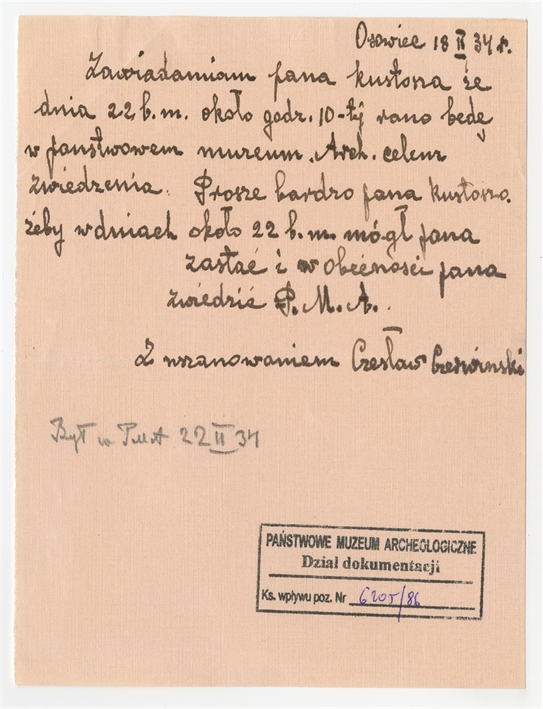 Osowiec 18 II 34 r.
Zawiadamiam pana kustosza że
dnia 22 b.m. około godz. 10-tej rano bedę
w państwowem muzeum. Arch. celem
zwiedzenia. Prosze bardzo pana kustosza.
żeby w dniach około 22 b.m. mógł pana
zastać i w obecności pana
zwiedzić P.M.A.
Z uszanowaniem Czesław
Był w PMA 22 II 34
PAŃSTWOWE MUZEUM ARCHEOLOGICZNE
Dział dokumentacji
Ks. wpływu poz. Nr 6205/86